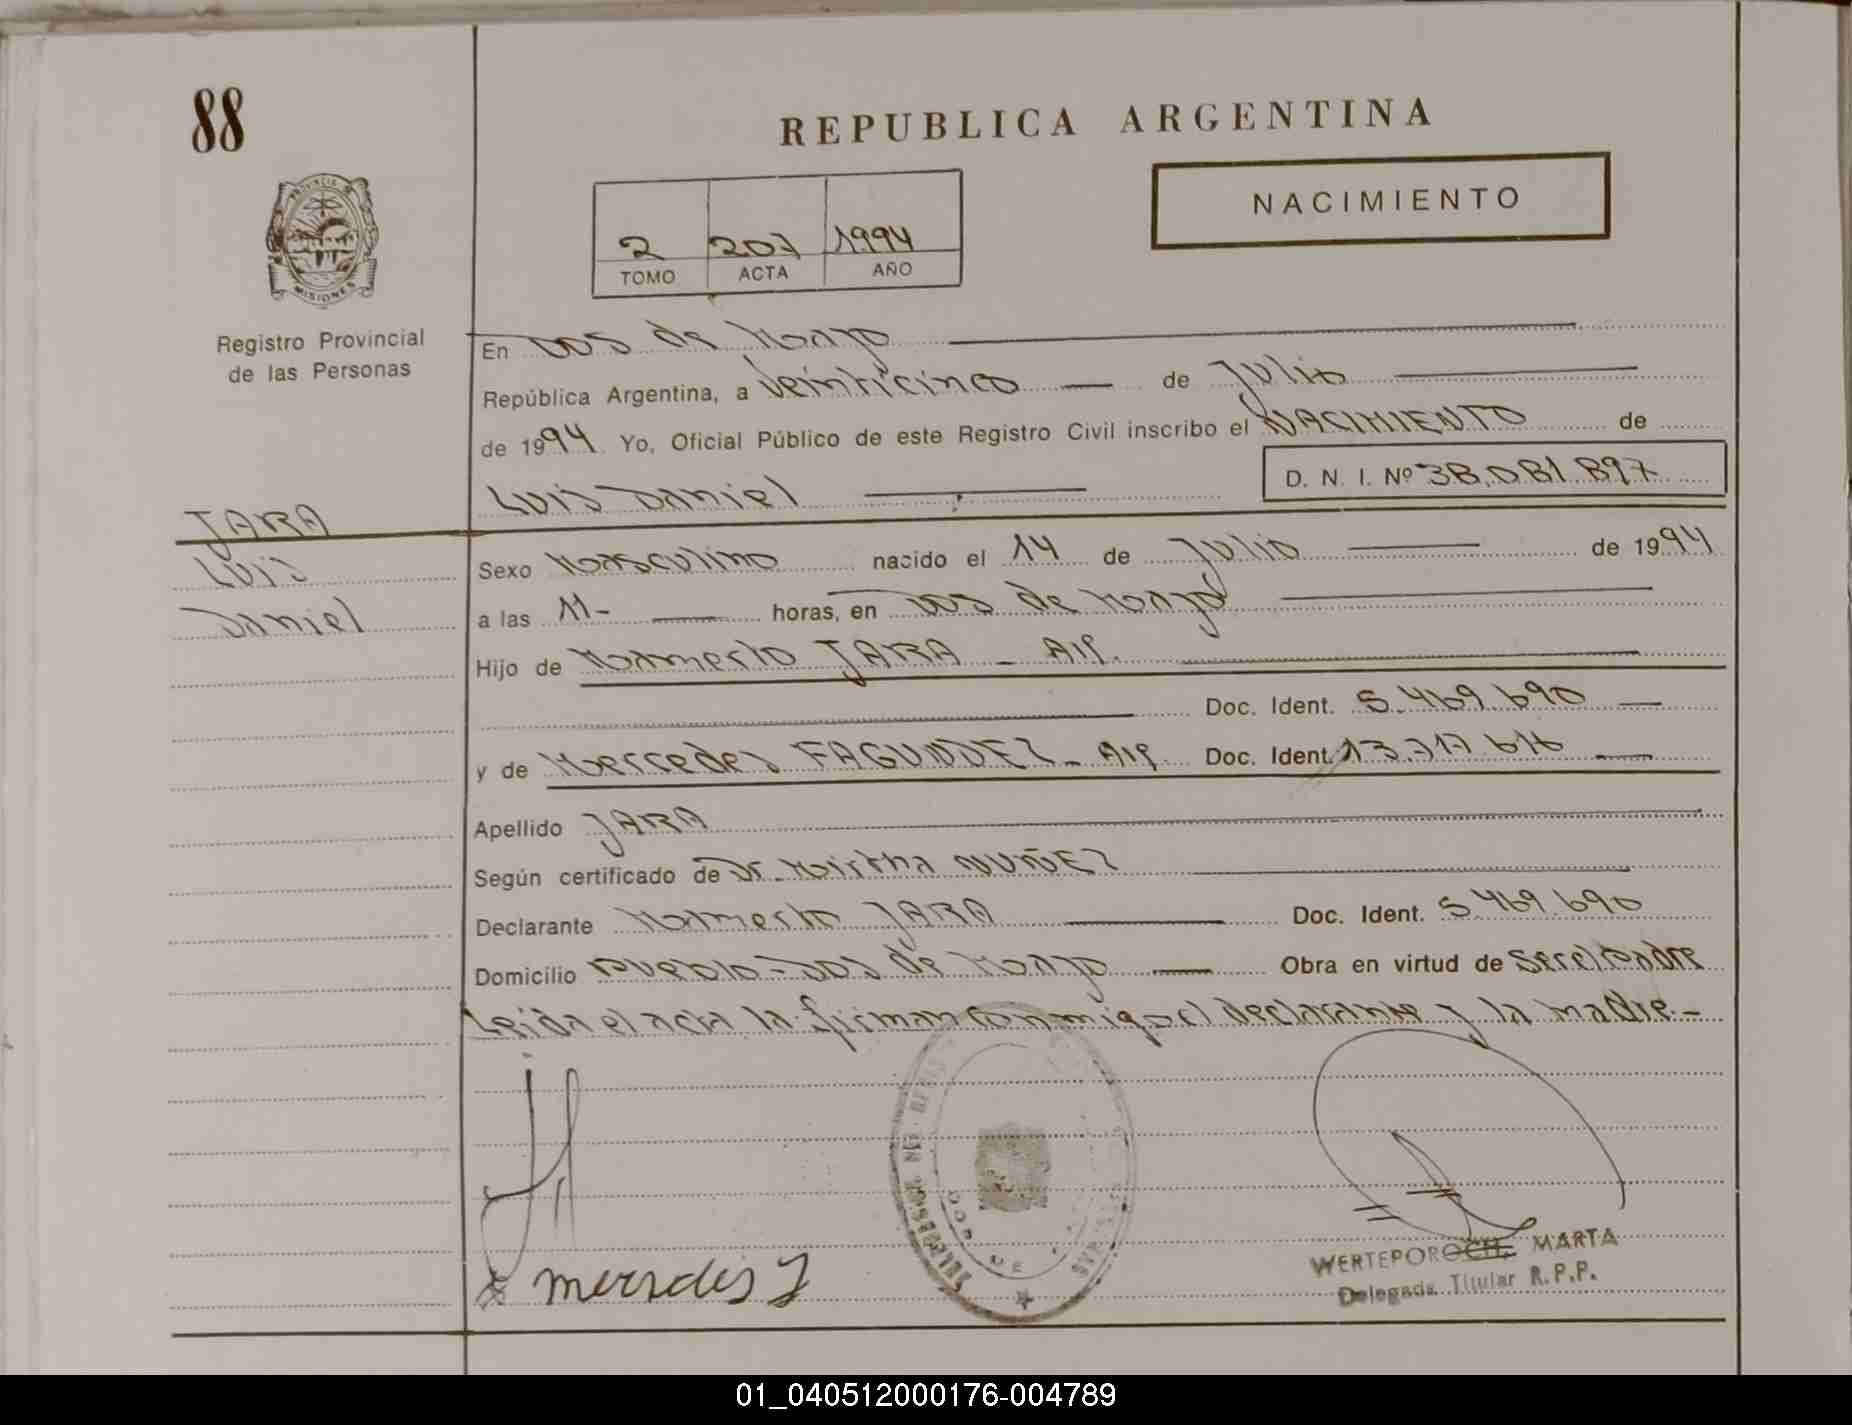 88
REPUBLICA ARGENTINA
NACIMIENTO
2 207 1994
TOMO ACTA AÑO
PROVINCIA DE
MISIONES
Registro Provincial
de las Personas
En Dos de Mayo
República Argentina, a veinticinco de Julio
de 1994 Yo, Oficial Público de este Registro Civil inscribo el NACIMIENTO de
Luis Daniel D. N. I. Nº 38.081.897
JARA
Luis
Daniel
Sexo Masculino nacido el 14 de Julio de 1994
a las 11- horas, en Dos de Mayo
Hijo de JARA - Arg.
Doc. Ident. 5.469.690
y de Mercedes FAGUNDEZ - Arg. Doc. Ident. 13.717.616
Apellido JARA
Según certificado de Dr. Mirtha NUÑEZ
Declarante JARA Doc. Ident. 5.469.690
Domicilio Pueblo - Dos de Mayo Obra en virtud de Ser el Padre
Leida el acta la firman conmigo el declarante y la madre.-
WERTEPOROCH, MARTA
Delegada Titular R.P.P.
01_040512000176-004789